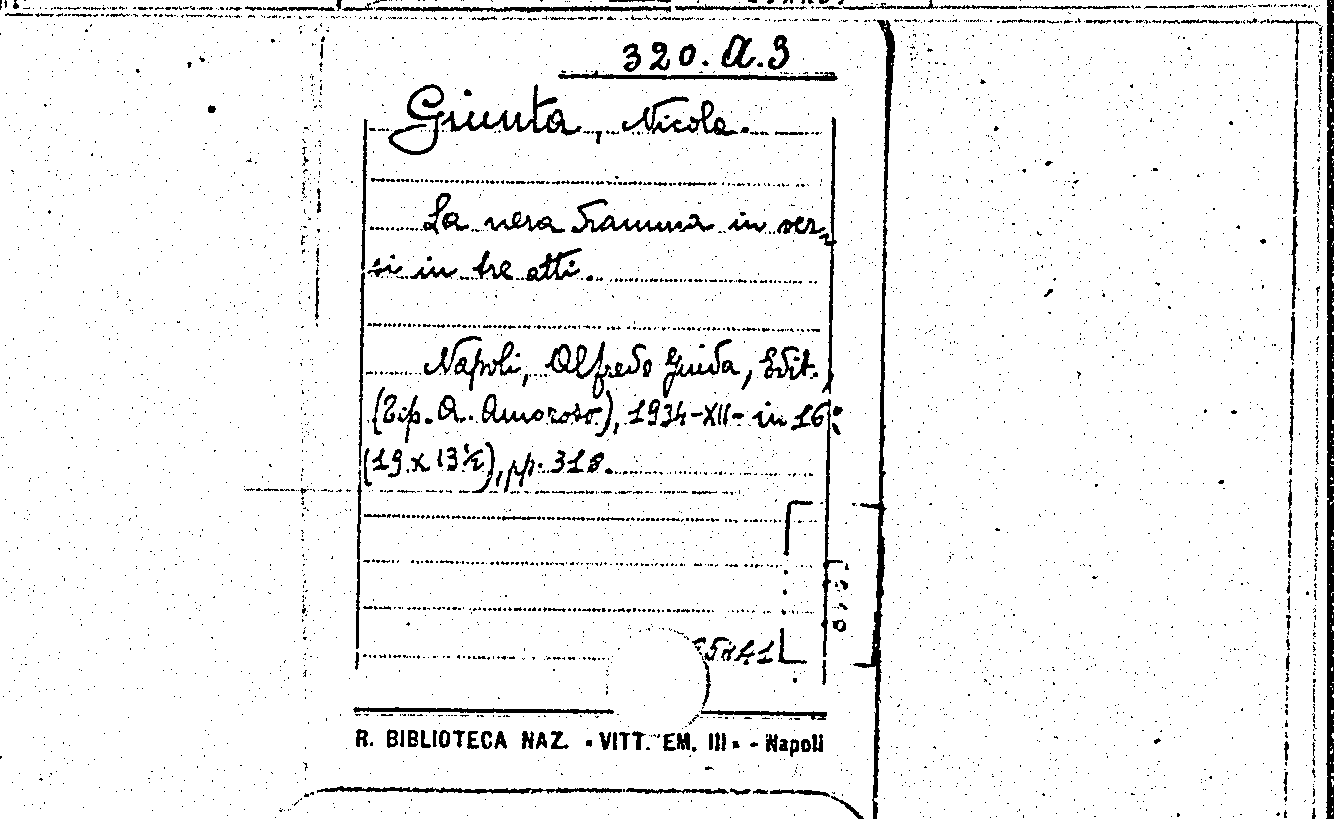 320.A.9
Giunta, Nicola.
La nera Tramma in ver-
si in tre atti.
Napoli, Alfredo Guida, Edit.,
(Tip. A. Amoroso), 1934-XII- in 16°:
(19 x 13½), pp. 318.
R. BIBLIOTECA NAZ. «VITT. EM. III» - Napoli